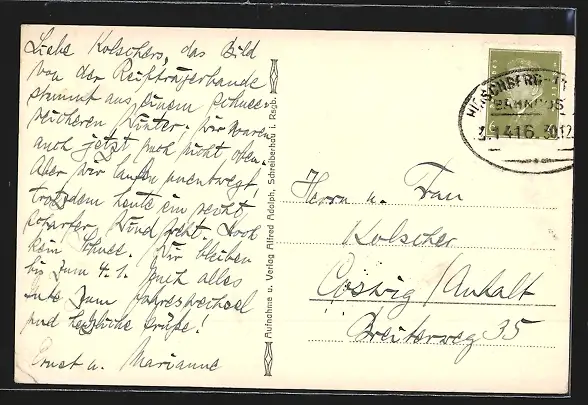 Liebe Kolschers, das Bild
von der Reifträgerbaude
stammt aus einem schnee-
reicheren Winter. Wir waren
auch jetzt noch nicht oben.
Aber wir laufen unentwegt,
trotzdem heute ein recht
scharfer Wind geht. Doch
kein Schnee. Wir bleiben
bis zum 4.1. Euch alles
Gute zum Jahreswechsel
und herzliche Grüße.
Ernst u. Marianne
Aufnahme u. Verlag Alfred Adolph, Schreiberhau i. Rsgb.
HIRSCHBERG
BAHNPOST
Z. 1416 30.12
Herrn u. Frau
Kolscher
Coswig/Anhalt
Breiterweg 35